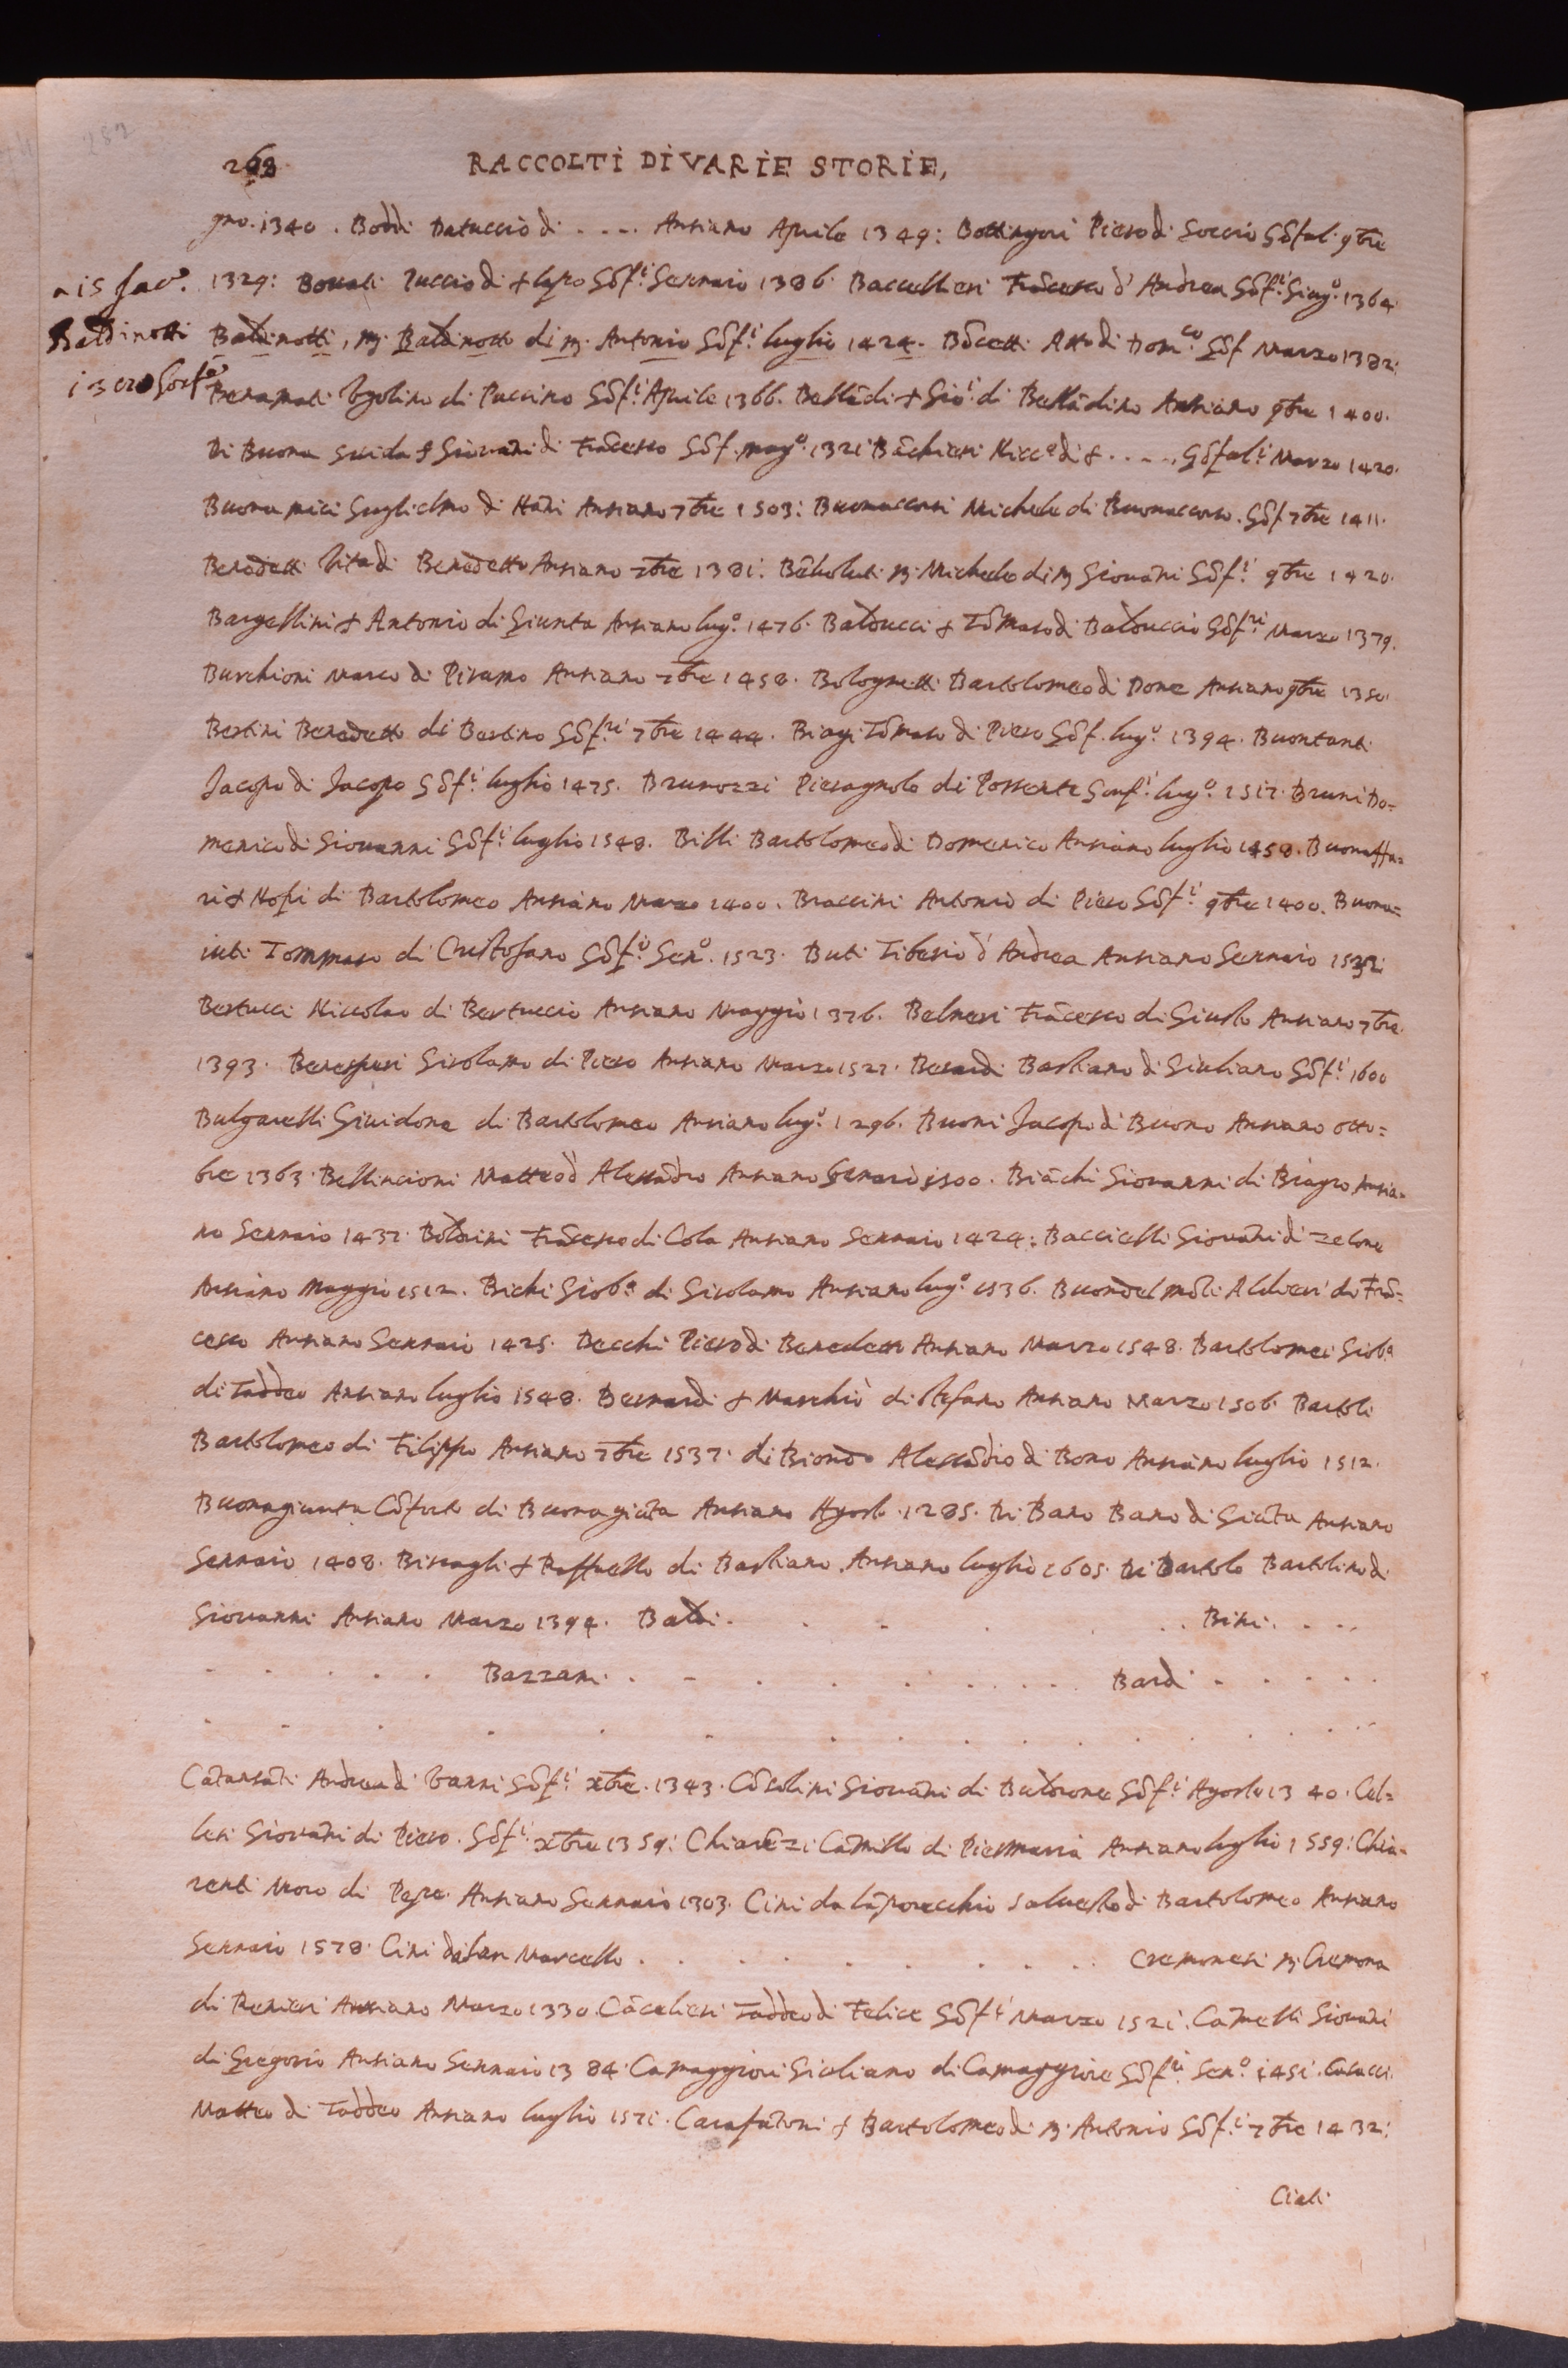 268 RACCOLTI DI VARIE STORIE,
gno. 1340. Boddi Datuccio di .... Anziano Aprile 1349: Bottingori Piero di Soccio Gõfal. 9bre
1329: Bonati Puccio di + lapo Gõf.i Gennaio 1386. Baccellieri Frãcesco d'Andrea Gõf.i Giug.o 1364.
Baldinotti, M. Baldinotto di M. Antonio Gõf.i luglio 1424. Bõcetti Atto di Dom.co Gõf Marzo 1382:
a is Jac.o
Baldinotti
Benamati Ugolino di Puccino Gõf.i Aprile 1366. Bellãdi + Gio: di Bellãdino Anziano 9bre 1400.
Di Buona guida + Giovani di Frãcesco Gõf. mag.o 1321 Bãchieri Nicc.o di + ..... Gõfal.i Marzo 1420.
Buonamici Guglielmo di Nãni Anziano 7bre 1503: Buonaccorsi Michele di Buonaccorso. Gõf 7bre 1411.
Benedetti Vita di Benedetto Anziano 7bre 1381. M. Michele di M Giovãni Gõf.i 9bre 1420.
Bargellini + Antonio di Giunta Anziano lug.o 1476. Balducci + Tõmaso di Balduccio Gõf.ri Marzo 1379.
Burchioni Marco di Piramo Anziano 7bre 1458. Bolognetti Bartolomeo di Done Anziano 9bre 1350.
Bertini Benedetto di Bertino Gõf.ri 7bre 1444. Biagi Tõmaso di Piero Gõf. lug.o 1394. Buontanti
Jacopo di Jacopo Gõf.i luglio 1475. Brunozzi Pieragnolo di Possente Gonf.i lug.o 1517. Bruni Do=
menico di Giovanni Gõf.i luglio 1548. Billi Bartolomeo di Domenico Anziano luglio 1458. Buonaffe=
ri + Nofri di Bartolomeo Anziano Marzo 1400. Braccini Antonio di Piero Gõf.i 9bre 1400. Buona=
iuti Tommaso di Cristofano Gõf.i Gen.o 1523. Buti Tiberio d'Andrea Anziano Gennaio
Bertucci Niccolao di Bertuccio Anziano Maggio 1376. Belneri Frãcesco di Giusto Anziano 7bre
1393. Girolamo di Piero Anziano Marzo 1527. Berardi Bastiano di Giuliano Gõf.i 1600
Bulgarelli Guidone di Bartolomeo Anziano lug.o 1296. Buoni Jacopo di Buono Anziano otto=
bre 1363. Bellincioni Matteo d'Alessãdro Anziano Genaio 1500. Biãchi Giovanni di Biagio Anzia=
no Gennaio 1437. Boldrini Frãcesco di Cola Anziano Gennaio 1424: Baccicelli Giovãni di Zelone
Anziano Maggio 1512. Bichi Giob.a di Girolamo Anziano lug.o 1536. Buondelmõti Aldieri di Frã=
cesco Anziano Gennaio 1425. Becchi Piero di Benedetto Anziano Marzo 1548. Bartolomei Giob.a
di Taddeo Anziano luglio 1548. Bernardi + Marchiò di Stefano Anziano Marzo 1506. Bartoli
Bartolomeo di Filippo Anziano 7bre 1537. di Biondo Alessãdro di Bono Anziano luglio 1512.
Buonagiunta Cõforto di Buonagiũta Anziano Agosto 1285. Di Bano Bano di Giũta Anziano
Gennaio 1408. Biscagli + Raffaello di Bastiano. Anziano luglio 1605. Di Bartolo Bartolino di
Giovanni Anziano Marzo 1394. Baldi. . . . . . Bini. . . .
. . . . . Bazzani. . . . . . . . . Bardi . . . . .
. . . . . . . . . . . . . .
Catansãti Andrea di Vanni Gõf.i xbre. 1343. Cõsolini Giovãni di Baldrone Gõf.i Agosto 1340. Cel=
lesi Giovãni di Piero. Gõf.i xbre 1359: Chiarẽzi Camillo di Piermaria Anziano luglio 1559: Chia=
renti Moro di Pepe Anziano Gennaio 1303. Cini da lãporecchio Salvestro di Bartolomeo Anziano
Gennaio 1578. Cini da San Marcello . . . . . . . . . Cremonesi M. Cremona
di Renieri Anziano Marzo 1330. Cãcelieri Taddeo di Felice Gõf.i Marzo 1521. Camelli Giovãni
di Gregorio Anziano Gennaio 1384. Camaggiori Giuliano di Camaggiore Gõf.ri Gen.o 1451. Casucci
Matteo di Taddeo Anziano luglio 1571. Carafatoni + Bartolomeo di M. Antonio Gõf.i 7bre 1432:
Ciati